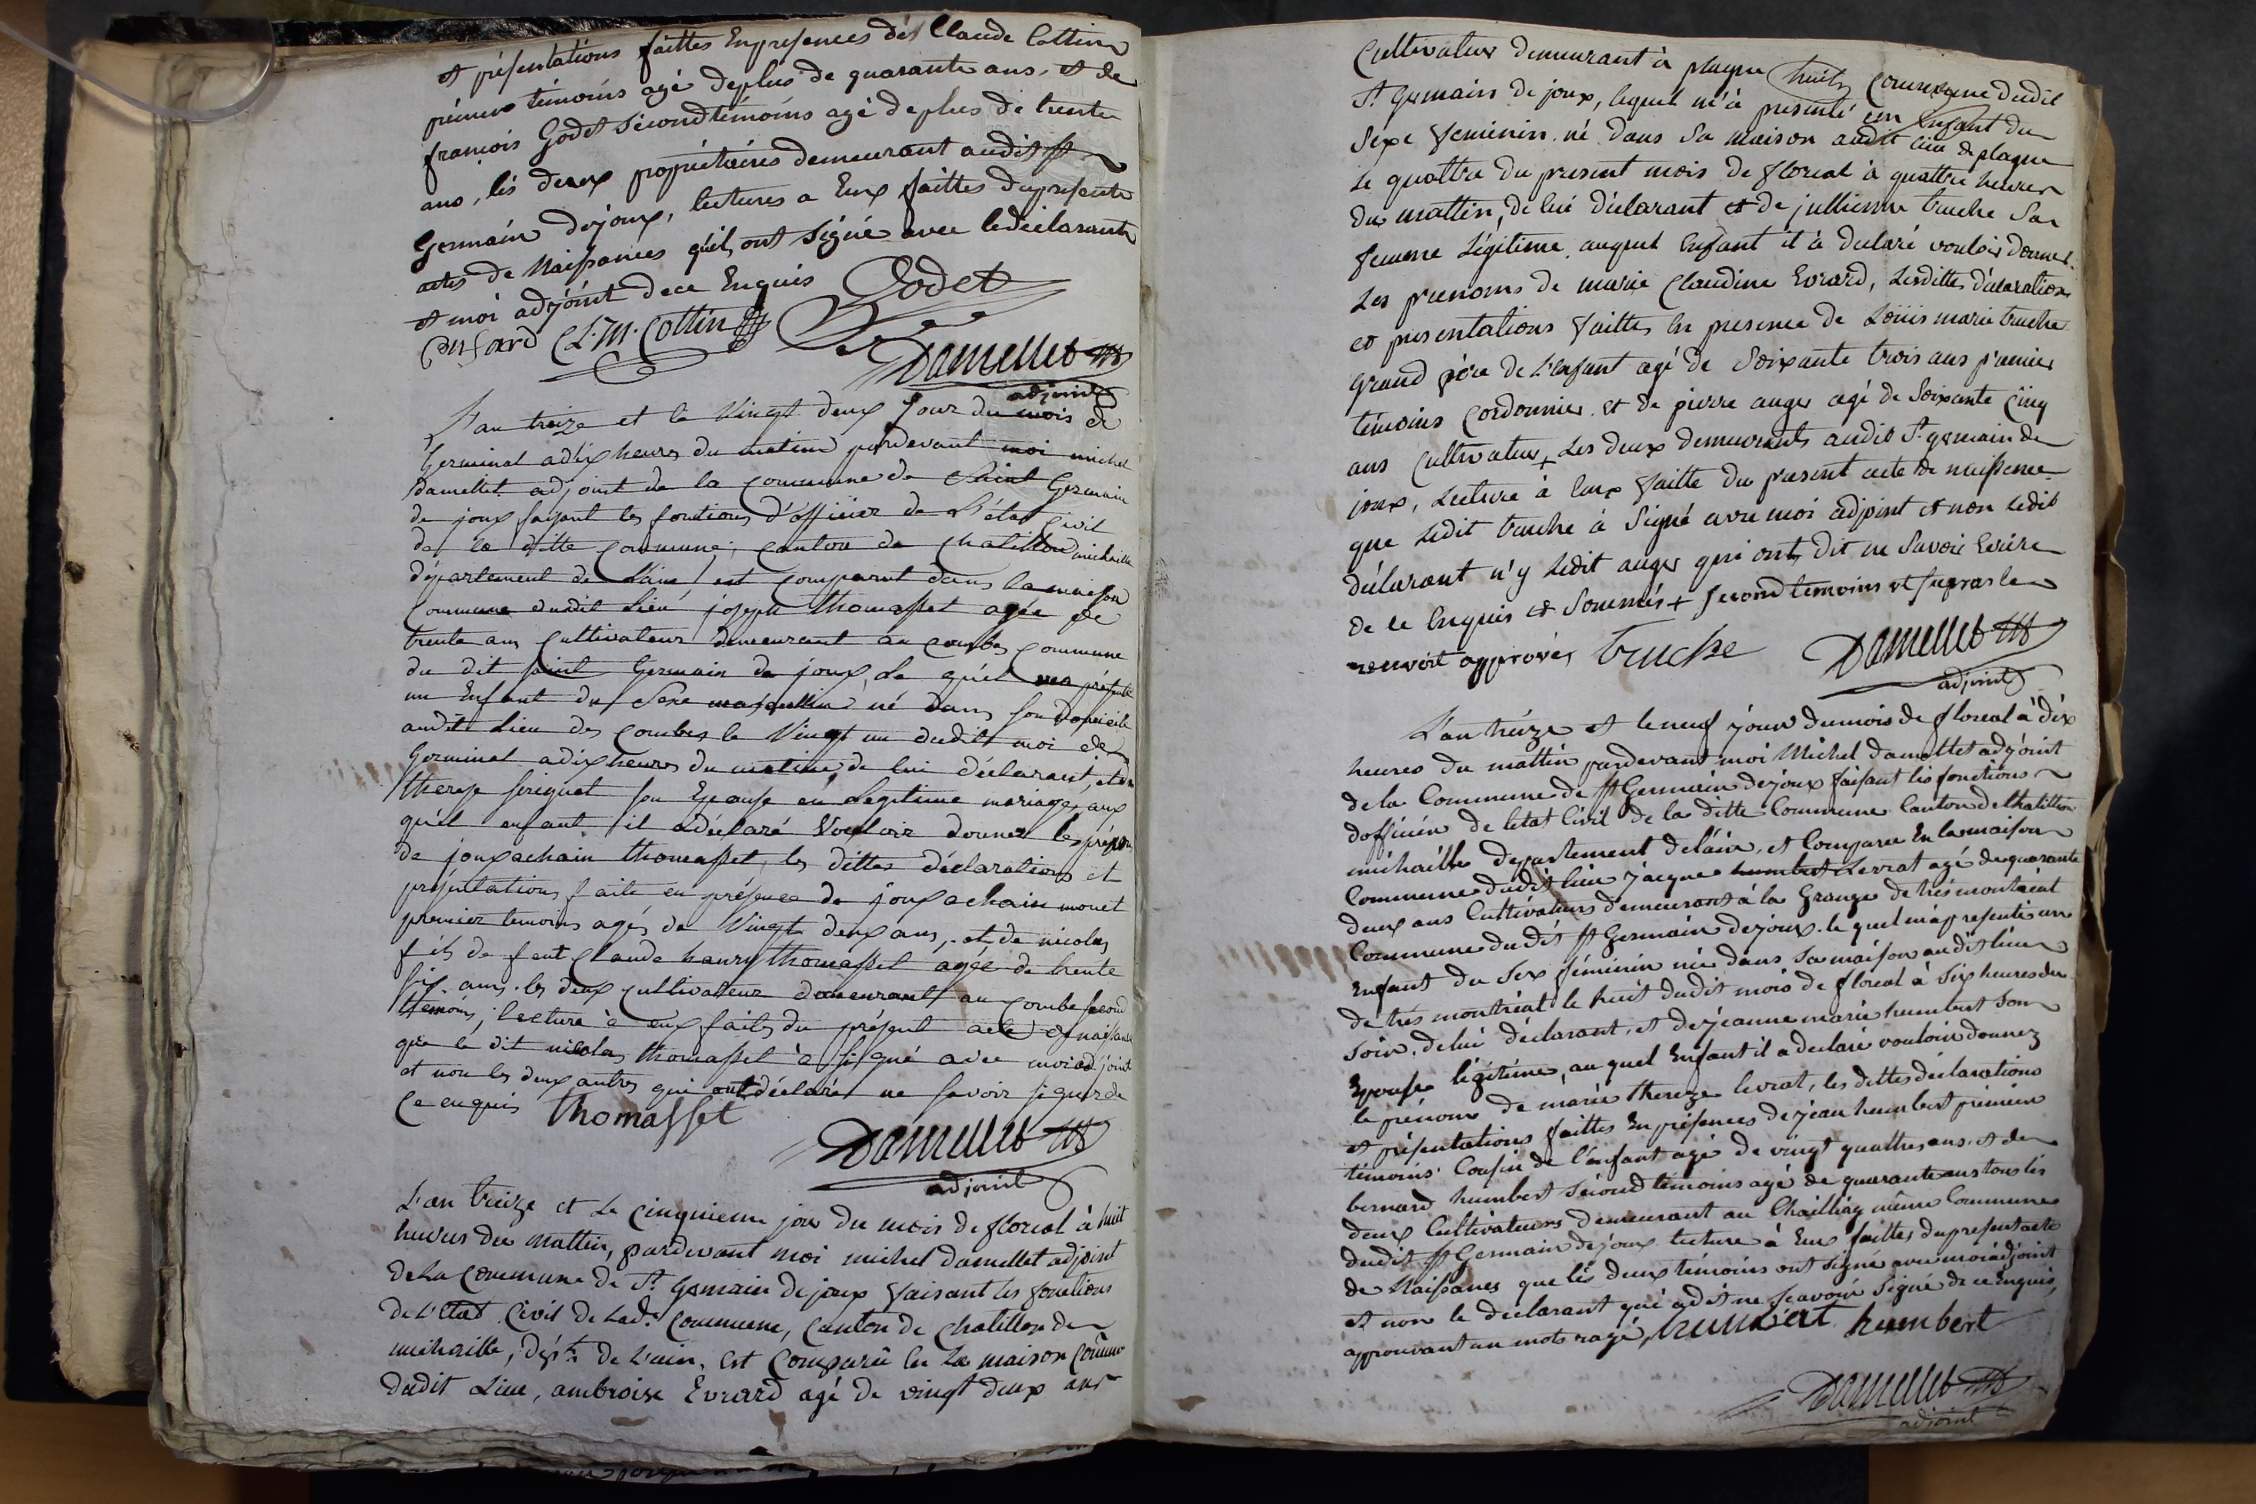 et présentations faittes En presences dés Claude Cottin
prémier témoins agé de plus de quarante ans, et de
françois Godet sécond témoins agé de plus de trente
ans, lés deux propriétaires demeurant audit St
Germain dejoux, lectures a Eux faittes du présente
actes de Naissances quil ont Signé avec le déclarante
et moi adjoint de ce Enquis Godet
Ponsard Cl. M. Cottin
Damellet
adjoint
L'an treize et le Vingt deux jour du mois de
Germinal a dix heures du matin pardevant moi michel
damellet adjoint de la commune de Saint Germain
de joux faisant les fonctions d'officier de L'état Civil
de la ditte commune, canton de chatillon michaille
département de L'ain, est comparut dans la maison
Commune dudit Lieu joseph thomasset agée de
trente ans cultivateur demeurant au combes commune
du dit saint Germain de joux, Le quel ma présenté
un Enfant du Sexe masqullin né dans son domicile
audit Lieu des combes le Vingt un dudit moi de
Germinal a dix heures du matin, de lui déclarant, et de
therese Epouse en Légitime mariage, aux
quél enfant il a déclaré Vouloir donner les prénom
de jouxachain thomasset, les dittes déclarations et
présentations faite en présence de jouxachain monet
premier temoins agés de Vingt deux ans, et de nicolas
fils de feut Claude haury thomasset agée de trente
six ans les deux cultivateur demeurant au combe second
témoins, lecture à eux faite du présent acte de naissance
que le dit nicolas thomasset à signé avec moi adjoint
et non les deux autres qui ont déclaré ne savoir signer de
ce enquis thomasset
Damellet
adjoint
L'an treize et Le cinquieme jour du mois de floreal à huit
heures du mattin, pardevant moi michel damellet adjoint
de La commune de St. germain de joux faisant les fonctions
de L'Etat Civil de Lad. Commune, Canton de chatillon de
michaille, dépt. de L'ain, Est Comparû en La maison Commune
dudit Lieu, ambroise Evrard agé de vingt deux ans
Cultivateur demeurant à plagne commune dudit
St. germain de joux, lequel m'à presenté un Enfant du
sexe feminin né dans Sa maison audit lieu de plagne
Le quattre du present mois de floreal à quattre heures
du mattin, de lui déclarant et de jullienne truche Sa
femme Légitime, auquel Enfant il à declaré vouloir donner
Les prenoms de marie Claudine Evrard, Lesdittes déclarations
et presentations faittes en presence de Loüis marie truche
grand père de L'enfant agé de Soixante trois ans premier
témoins Cordonnier et de pierre auger agé de Soixante Cinq
ans Cultivateur + Les deux demeurants audit St. germain de
joux, Lecture à Eux faitte du present acte de naissence
que Ledit truche à Signé avec moi adjoint et non Ledit
déclarant n'y Ledit auger qui ont dit ne Savoir Ecrire
de ce Enquis et Sommés + second temoins et
renvoit approvés truche Damellet
adjoint
L'an treize et le neuf jour du mois de floreal à dix
heures du mattin pardevant moi Michel damellet adjoint
de la Commune de St Germain dejoux faisant lés fonctions
dofficier de letat Civil de la ditte Commune Canton de Chatillon
michaille departement delain, et Comparu En la maison
Commune dudit lieu jacque humbert Levrat agé de quarante
deux ans Cultivateur demeurant à la Grange de trés montréal
Commune dudit St Germain dejoux le quel mà presenté un
Enfant du Sex féminin né dans Sa maison audit lieu
de trés montréal le huit dudit mois de floreal à Six heures du
Soir, de lui déclarant, et de jeanne marie humbert Son
Epouse légitime, au quel Enfant il a declaré vouloir donnez
le prénom de marie thereze levrat, les dittes déclarations
et présentations faittes En présences de jean humbert prémier
témoins Cousin de l'enfant agé de vingt quattres ans, et de
bernard humbert Sécond témoins agé de quarante ans tous lés
deux Cultivateurs demeurant au Chailliay même Commune
dudit St Germain dejoux lecture à Eux faittes du présent acte
de Naissances que lés deux témoins ont signé avec moi adjoint
et non le déclarant qui a dit ne scavoir Signé de ce Enquis,
approuvant un mots rayé, humbert humbert
Damellet
adjoint